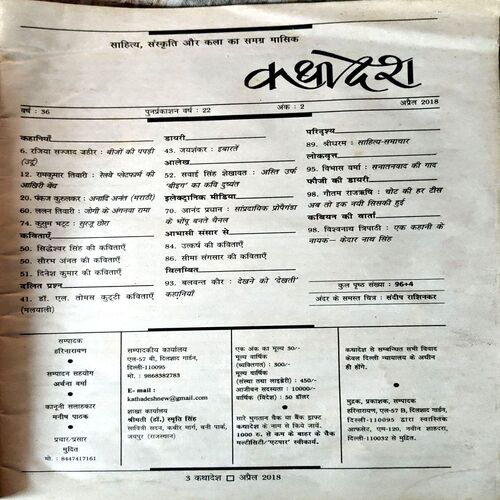 साहित्य, संस्कृति और कला का समग्र मासिक
कथादेश
वर्ष : 36
पुनर्प्रकाशन वर्ष : 22
अंक : 2
अप्रैल 2018
कहानियाँ
6. रजिया सज्जाद जहीर : बीजों की पपड़ी
(उर्दू)
12. रामकुमार तिवारी : रेलवे प्लेटफार्म की
आखिरी बेंच
20. पंकज कुरुलकर : अनादि अनंत (मराठी)
60. ललन तिवारी : जोगी के अंगनवा रामा
74. कुसुम भट्ट : सुरजू छोरा
कविताएँ
50. सिद्धेश्वर सिंह की कविताएँ
50. सौरभ अनंत की कविताएँ
51. दिनेश कुमार की कविताएँ
दलित प्रश्न
41. डॉ. एल. तोमस कुट्टी कविताएँ
(मलयाली)
डायरी
43. जयशंकर : इबारतें
आलेख
52. सवाई सिंह शेखावत : अस्ति उर्फ
'बीइंग' का कवि दुष्यंत
इलेक्ट्रानिक मीडिया
70. आनंद प्रधान : सांप्रदायिक प्रोपैगैंडा
के भोंपू बनते चैनल
आभासी संसार से
84. उत्कर्ष की कविताएँ
86. सीमा संगसार की कविताएँ
विलम्बित
93. बलवन्त कौर : देखने को 'देखती'
कहानियाँ
परिदृश्य
89. श्रीधरम : साहित्य-समाचार
लोकवृत्त
95. विभास वर्मा : सनातनवाद की गाद
फौजी की डायरी
98. गौतम राजऋषि : चोट की हर टीस
अब तो इक नयी सिसकी हुई
कवियन की वार्ता
98. विश्वनाथ त्रिपाठी : एक कहानी के
नायक– केदार नाथ सिंह
कुल पृष्ठ संख्या : 96+4
अंदर के समस्त चित्र : संदीप राशिनकर
सम्पादक
हरिनारायण
सम्पादन सहयोग
अर्चना वर्मा
कानूनी सलाहकार
मनीष पाठक
प्रचार-प्रसार
मुदित
मो. : 8447417161
सम्पादकीय कार्यालय
एल-57 बी, दिलशाद गार्डन,
दिल्ली-110095
मो. : 9868382783
E-mail :
kathadeshnew@gmail.com
शाखा कार्यालय
श्रीमती (डॉ.) स्मृति सिंह
सावित्री सदन, कबीर मार्ग, बनी पार्क,
जयपुर (राजस्थान)
एक अंक का मूल्य 30/-
मूल्य वार्षिक
(व्यक्तिगत) : 300/-
मूल्य वार्षिक
(संस्था तथा लाइब्रेरी) : 450/-
आजीवन सदस्यता : 10000/-
वार्षिक (विदेश) : 50 डॉलर
सारे भुगतान चैक या बैंक ड्राफ्ट
कथादेश के नाम से किये जायें.
1000 रु. से कम के बाहर के चैक
मल्टीसिटी/'एटपार' स्वीकार्य.
कथादेश से सम्बन्धित सभी विवाद
केवल दिल्ली न्यायालय के अधीन
ही होंगे.
मुद्रक, प्रकाशक, सम्पादक
हरिनारायण, एल-57 B, दिलशाद गार्डन,
दिल्ली-110095 द्वारा स्वास्तिक
आफसेट, एम-120, नवीन शाहदरा,
दिल्ली-110032 से मुद्रित.
3 कथादेश □ अप्रैल 2018